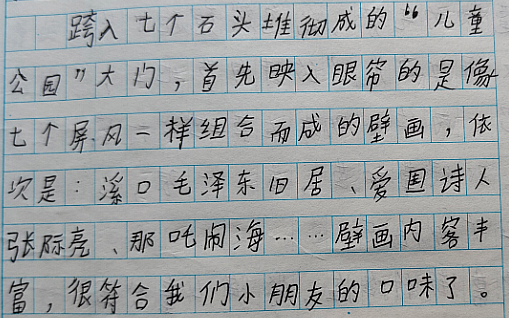 跨入七个石头堆彻成的“儿童
公园”大门，首先映入眼帘的是像
七个屏风一样组合而成的壁画，依
次是：溪口毛泽东旧居、爱国诗人
张际亮、那吒闹海……壁画内容丰
富，很符合我们小朋友的口味了。